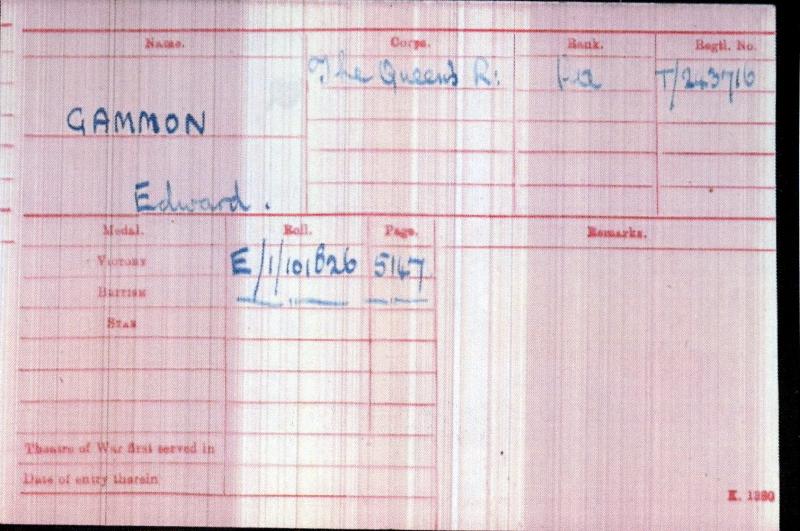 Name. Corps. Rank. Regtl. No.
The Queen's R: T/243716
GAMMON
Edward.
Medal. Roll. Page. Remarks.
Victory E/1/101B26 5147
British
Star
Theatre of War first served in
Date of entry therein
K. 1380